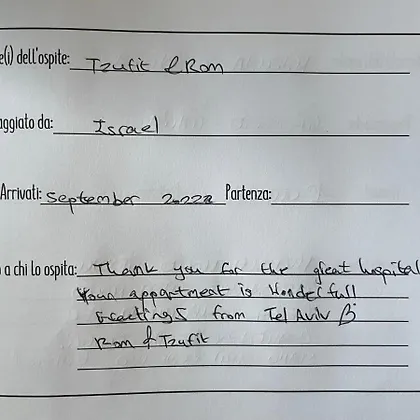 e(i) dell'ospite: Tzufit & Rom
aggiato da: Israel
Arrivati: September 2022 Partenza:
o a chi lo ospita: Thank you for the great hospital
Your appartment is Wonderfull
Greetings from Tel Aviv
Rom & Tzufit